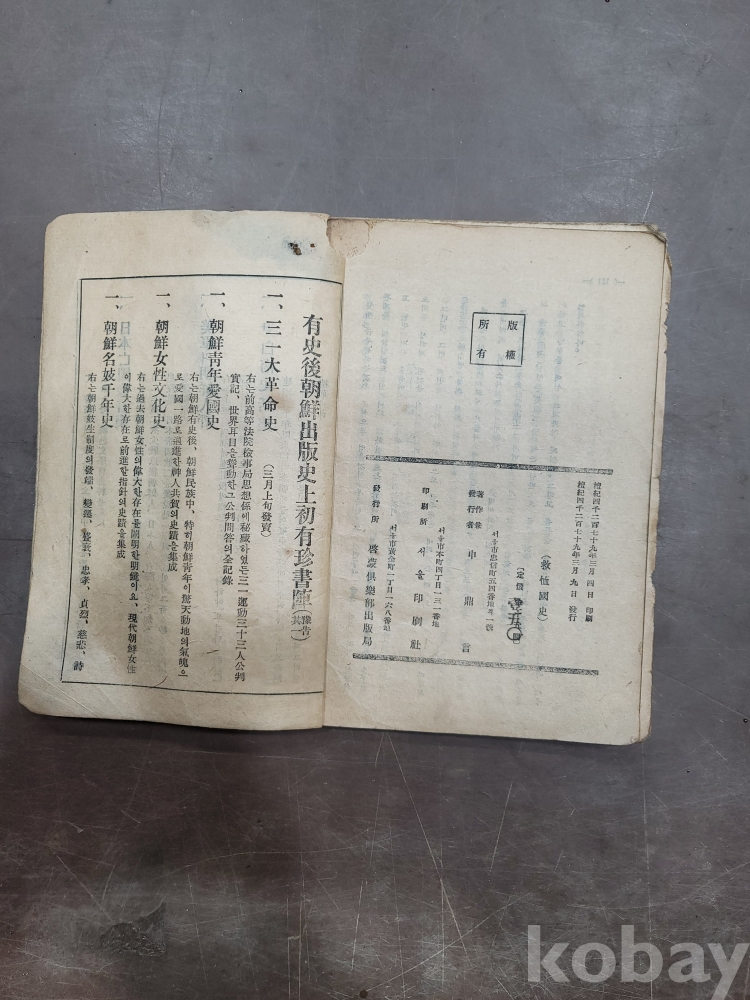 版權
所有
檀紀四千二百七十九年三月四日 印刷
檀紀四千二百七十九年三月九日 發行
(救恤國史)
【定價
서울市忠信町五四番地의一號
著作兼
發行者 申鼎言
서울市本町四丁目一三一番地
印刷所 서울印刷社
서울市黃金町一丁目一六八番地
發行所 啓蒙俱樂部出版局
有史後朝鮮出版史上初有珍書陣(豫告其一)
一、三一大革命史 (三月上旬發賣)
右는前高等法院檢事局思想係에秘藏하였든三一運動三十三人公判
實記、世界耳目을聳動하든그公判問答의全記錄
一、朝鮮靑年愛國史
右는朝鮮有史後、朝鮮民族中、特히朝鮮靑年이驚天動地의氣魄으
로愛國一路로邁進한神人共賀의史蹟을集成
一、朝鮮女性文化史
右는過去朝鮮女性의偉大한存在를闡明한明鏡이요、現代朝鮮女性
이偉大한存在로前進할指針의史蹟을集成
一、朝鮮名妓千年史
右는朝鮮妓生制度의發端、變遷、盛衰、忠孝、貞烈、慈悲、詩
kobay